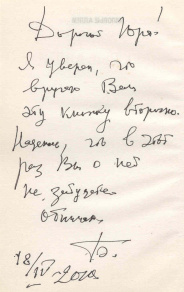 Дорогой Юра!
Я уверен, что
вручаю Вам
эту книжку вторично.
Надеюсь, что в этот
раз Вы о ней
не забудете
18/IV 2000